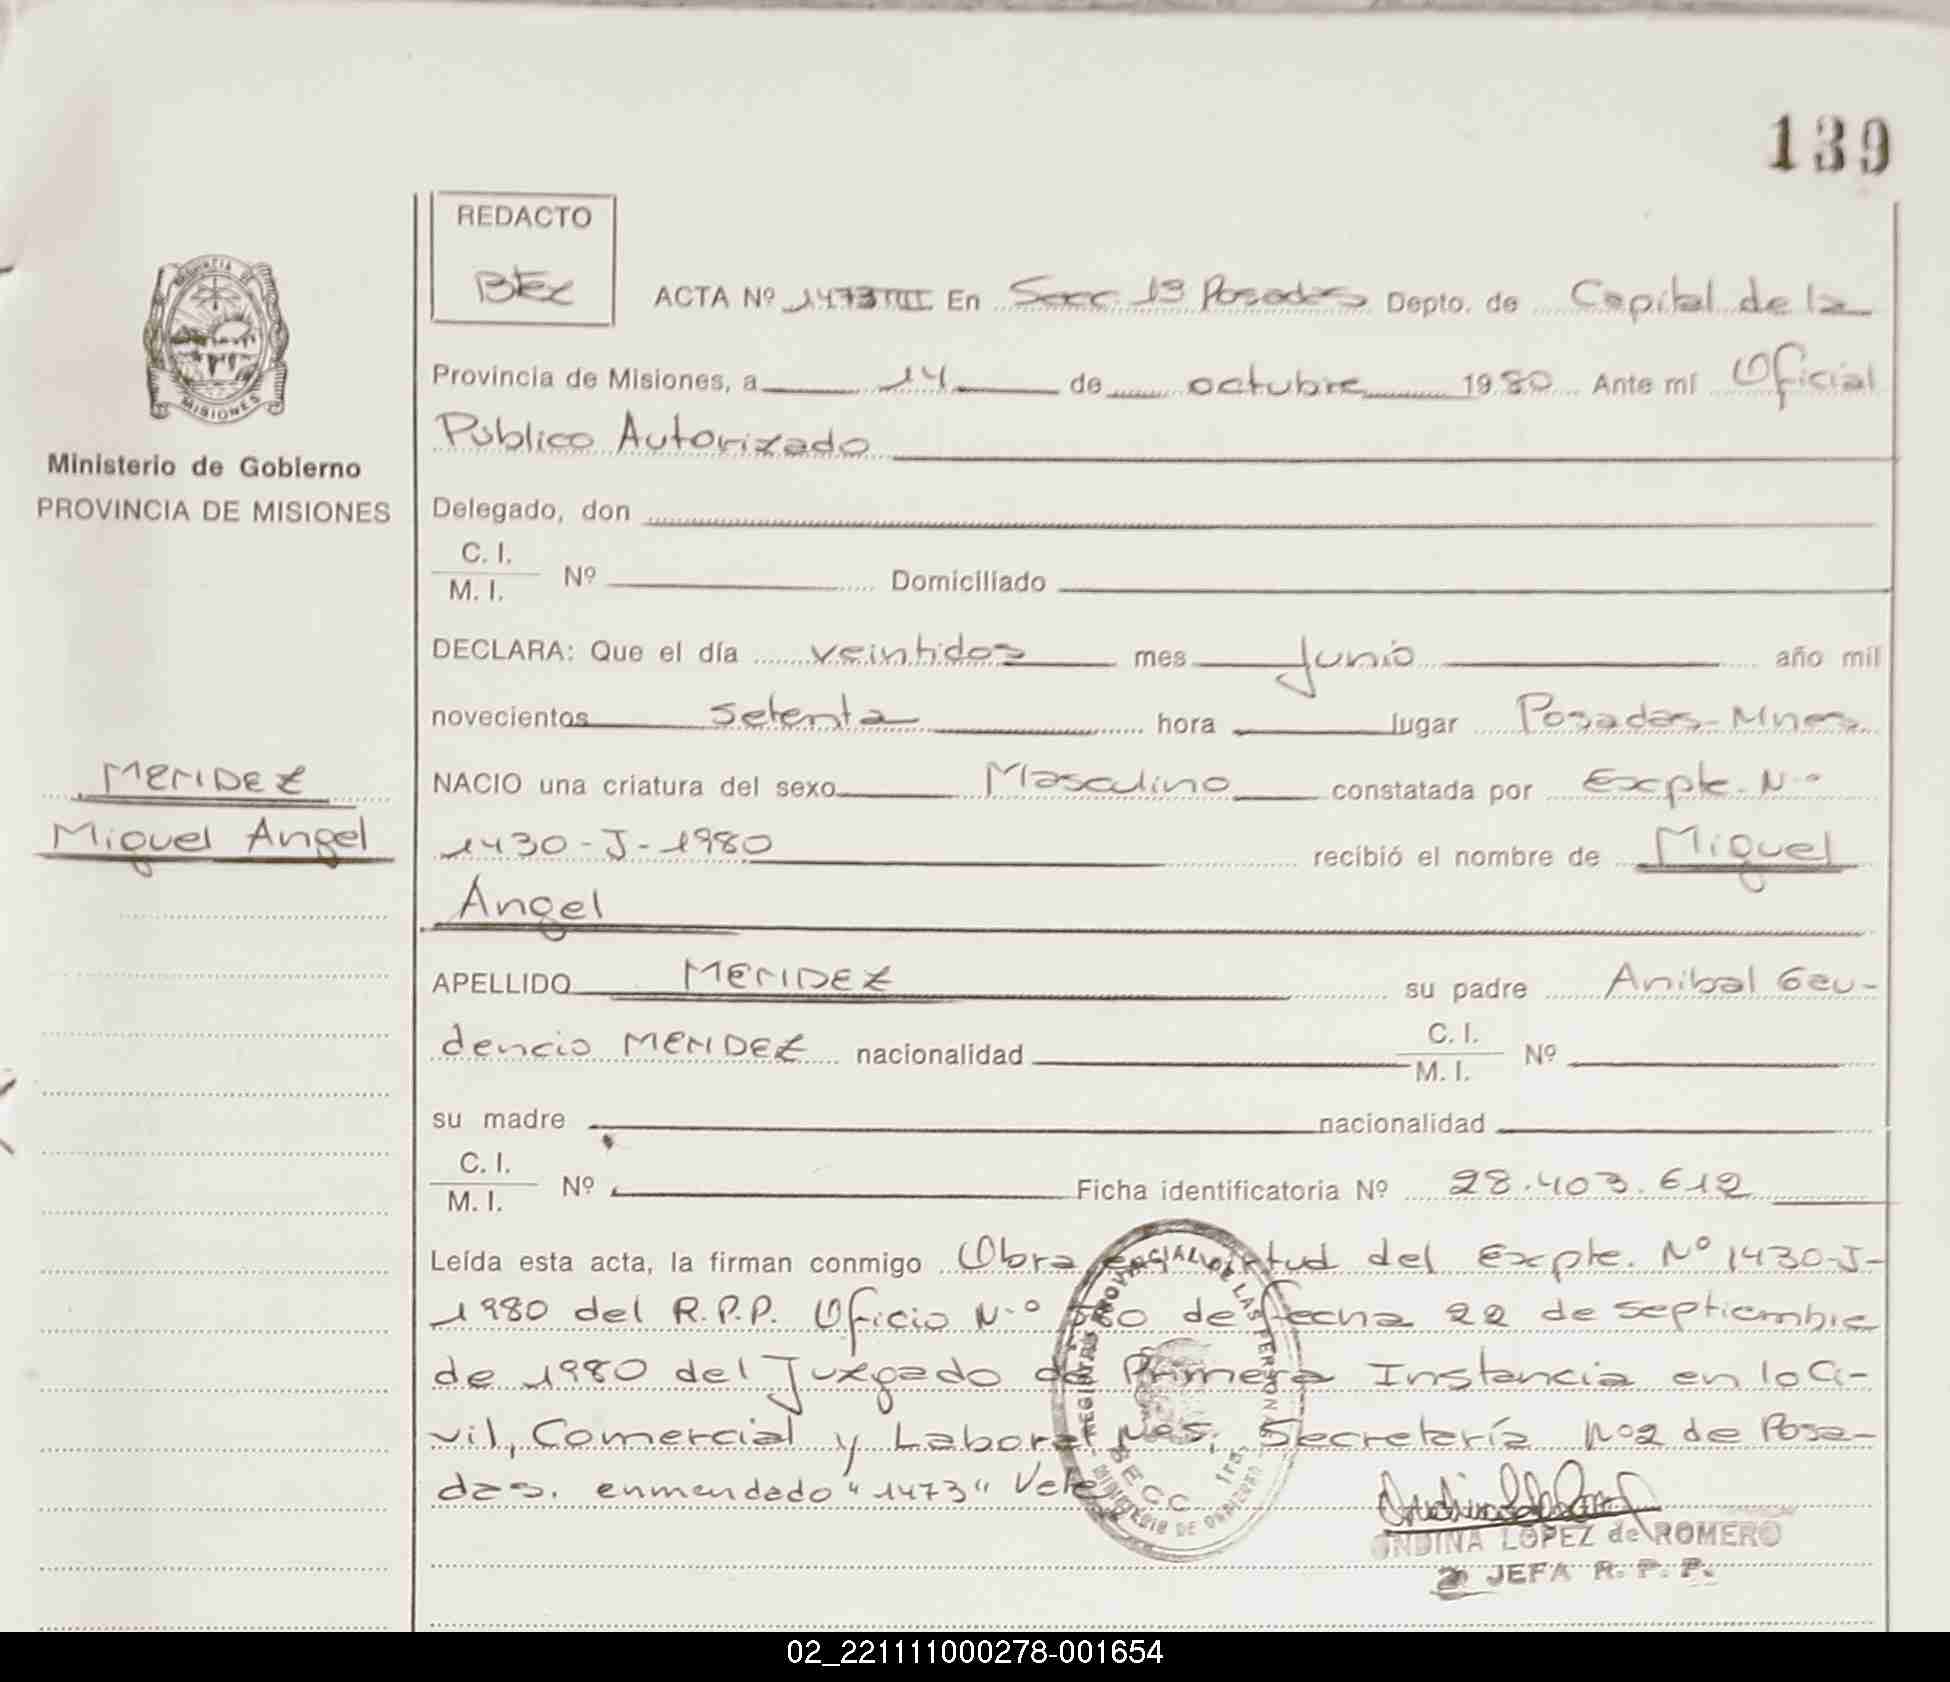 139
REDACTO
ACTA Nº 1473 III En Secc. 1ª Posadas Depto. de Capital de la
Provincia de Misiones, a 14 de octubre 1980 Ante mí Oficial
Público Autorizado
Ministerio de Gobierno
PROVINCIA DE MISIONES
Delegado, don
C. I.
M. I. Nº Domiciliado
DECLARA: Que el día veintidos mes Junio año mil
novecientos setenta hora lugar Posadas-Mnes
MENDEZ
Miguel Angel
NACIO una criatura del sexo Masculino constatada por Expte. Nº
1430-J-1980 recibió el nombre de Miguel
Angel
APELLIDO MENDEZ su padre Anibal Gau-
dencio MENDEZ nacionalidad C. I.
M. I. Nº
su madre nacionalidad
C. I.
M. I. Nº Ficha identificatoria Nº 28.403.612
Leída esta acta, la firman conmigo Obra en virtud del Expte. Nº 1430-J-
1980 del R.P.P. Oficio Nº de fecha 22 de septiembre
de 1980 del Juzgado de Primera Instancia en lo Ci-
vil, Comercial y Laboral Secretaría Nº2 de Posa-
das. enmendado "1473" Vale
REGISTRO PROVINCIAL DE LAS PERSONAS
SECC 1ra.
MINISTERIO DE GOBIERNO
ONDINA LOPEZ de ROMERO
JEFA R. P. P.
02_221111000278-001654